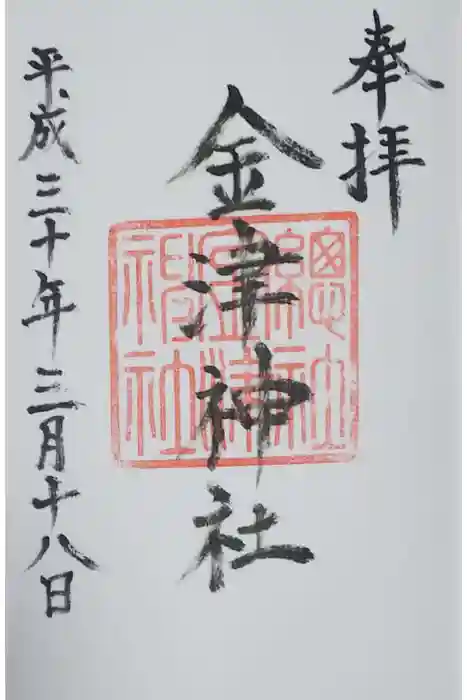 奉拝
金津神社
平成三十年三月十八日